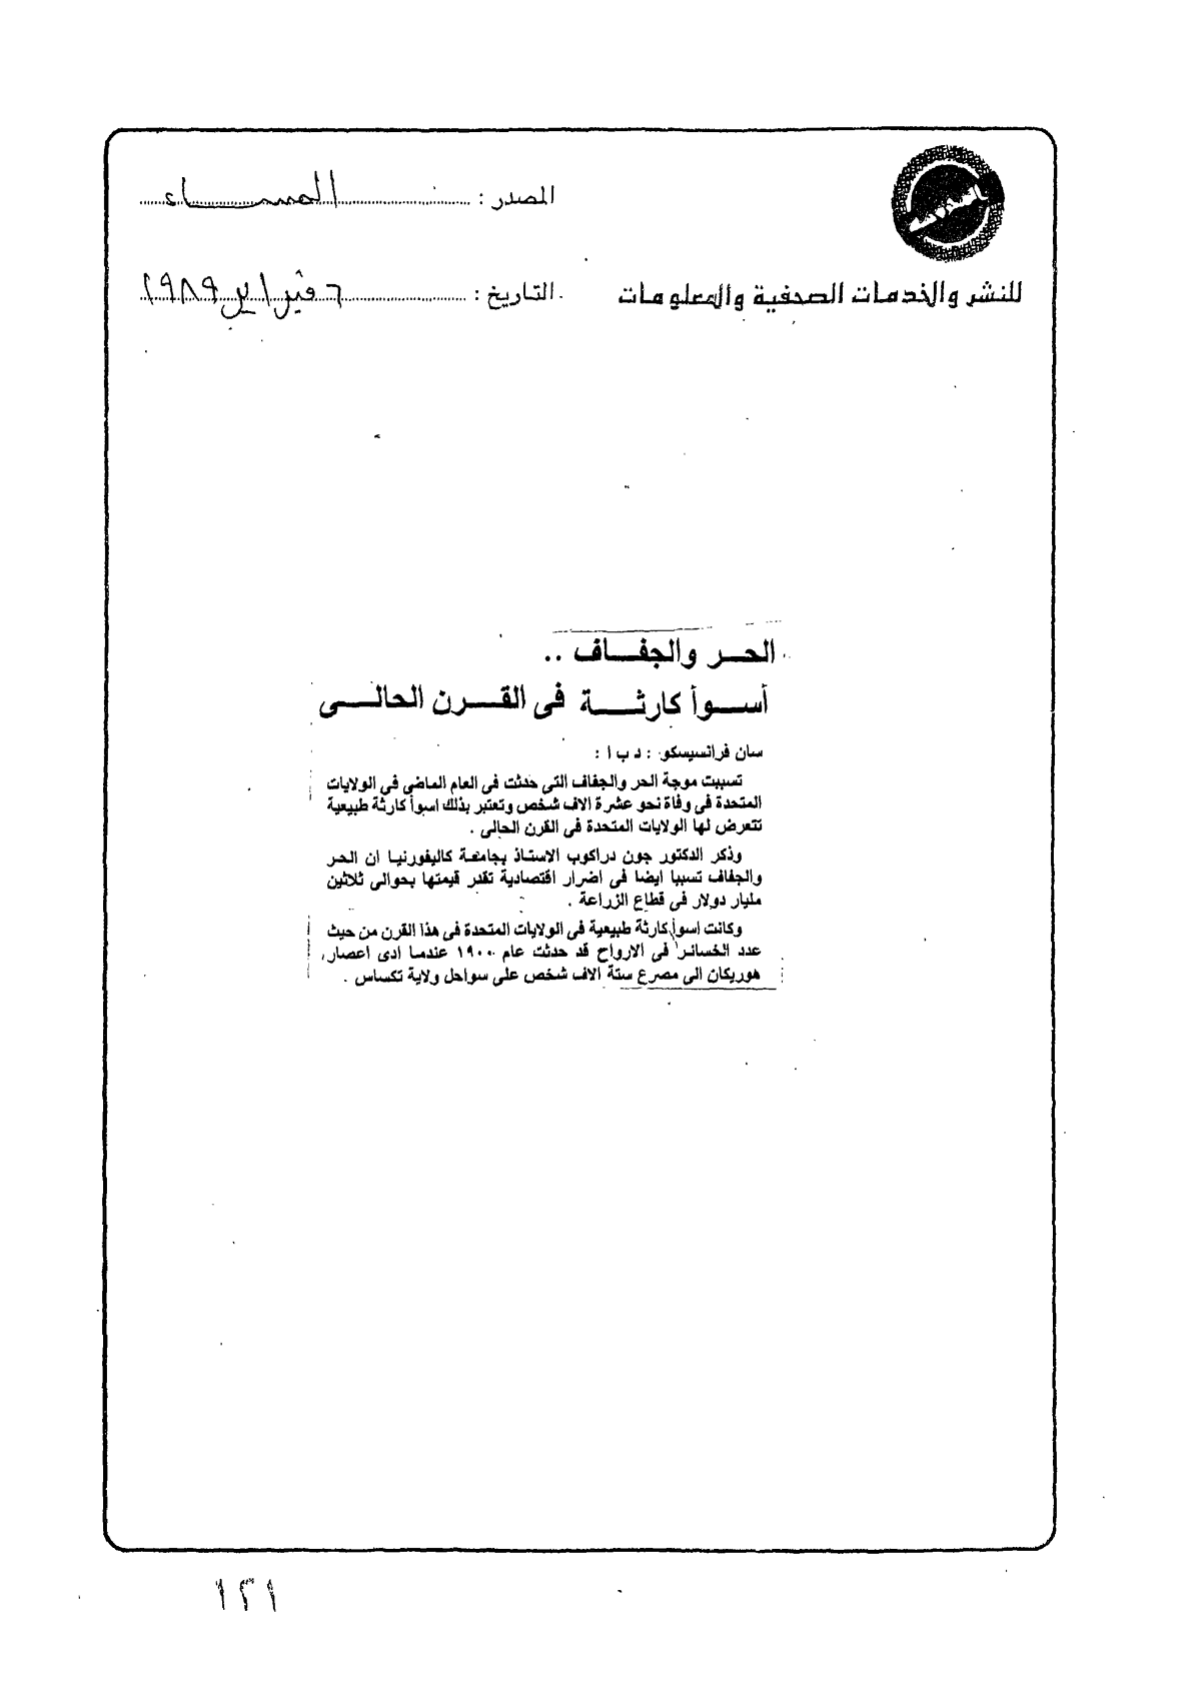 المصدر : المساء
للنشر والخدمات الصحفية والمعلومات
التاريخ : ٦ فبراير ١٩٨٩
الحر والجفاف ..
أسوأ كارثة فى القرن الحالى
سان فرانسيسكو : د ب ا :
تسببت موجة الحر والجفاف التى حدثت فى العام الماضى فى الولايات
المتحدة فى وفاة نحو عشرة الاف شخص وتعتبر بذلك اسوأ كارثة طبيعية
تتعرض لها الولايات المتحدة فى القرن الحالى .
وذكر الدكتور جون دراكوب الاستاذ بجامعة كاليفورنيا ان الحر
والجفاف تسببا ايضا فى اضرار اقتصادية تقدر قيمتها بحوالى ثلاثين
مليار دولار فى قطاع الزراعة .
وكانت اسوأ كارثة طبيعية فى الولايات المتحدة فى هذا القرن من حيث
عدد الخسائر فى الارواح قد حدثت عام ١٩٠٠ عندما ادى اعصار
هوريكان الى مصرع ستة الاف شخص على سواحل ولاية تكساس .
١٢١